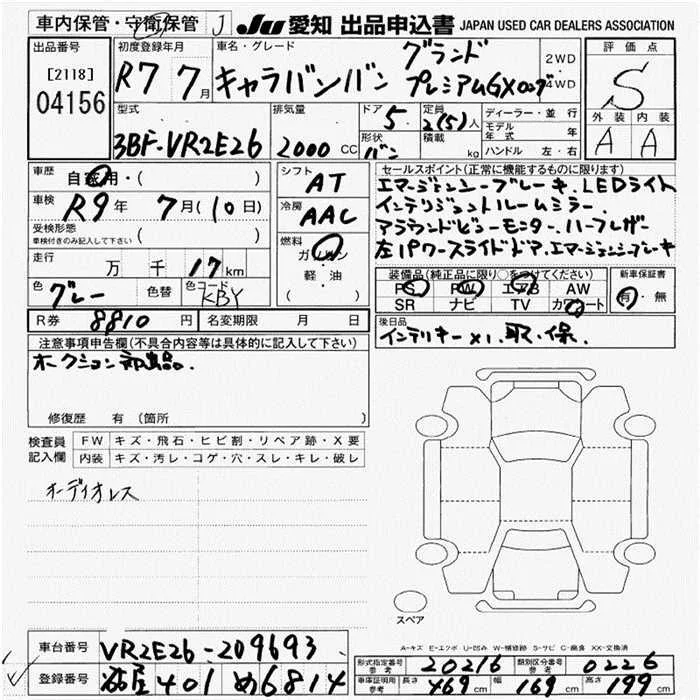 車内保管・守衛保管 J JU 愛知 出品申込書 JAPAN USED CAR DEALERS ASSOCIATION
出品番号 初度登録年月 車名・グレード 評価点
[2118] 04156
R7 7月
グランド
キャラバンバン プレミアムGXロング
2WD・4WD
S
外装 内装
A A
型式 排気量 ドア 定員 ディーラー・並行
3BF-VR2E26 2000 CC 5 2(5)人
形状 積載 モデル年式 年
バン kg ハンドル 左・右
車歴 自家用・( )
車検 R9年 7月(10日)
受検形態 車検付きのみ記入して下さい ( )
走行 万 千 17 km
色 グレー 色替 色コード KBY
シフト AT
冷房 AAC
燃料 ガソリン 軽・油 ( )
セールスポイント(正常に機能するものに限ります)
エマージェンシーブレーキ. LEDライト
インテリジェントルームミラー.
アラウンドビューモニター. ハーフレザー
左1パワースライドドア. エマージェンシーブレーキ
装備品(純正品に限り○をつけてください) 新車保証書
PS PW エアB AW 有・無
SR ナビ TV カワシート
R券 8810円 名変期限 月 日
後日品
インテリキーx1. 取. 保.
注意事項申告欄(不具合内容等は具体的に記入して下さい)
オークション
修復歴 有 (箇所
検査員記入欄 FW キズ・飛石・ヒビ割・リペア跡・X要
内装 キズ・汚レ・コゲ・穴・スレ・キレ・破レ
オーディオレス
スペア
A-キズ E-エクボ U-凹み W-補修跡 S-サビ C-腐食 XX-交換済
車台番号 VR2E26-209693
登録番号 401 め6814
形式指定番号 参考 20216 類別区分番号 参考 0226
車庫証明用 参考 長さ 469cm 幅 169cm 高さ 199cm